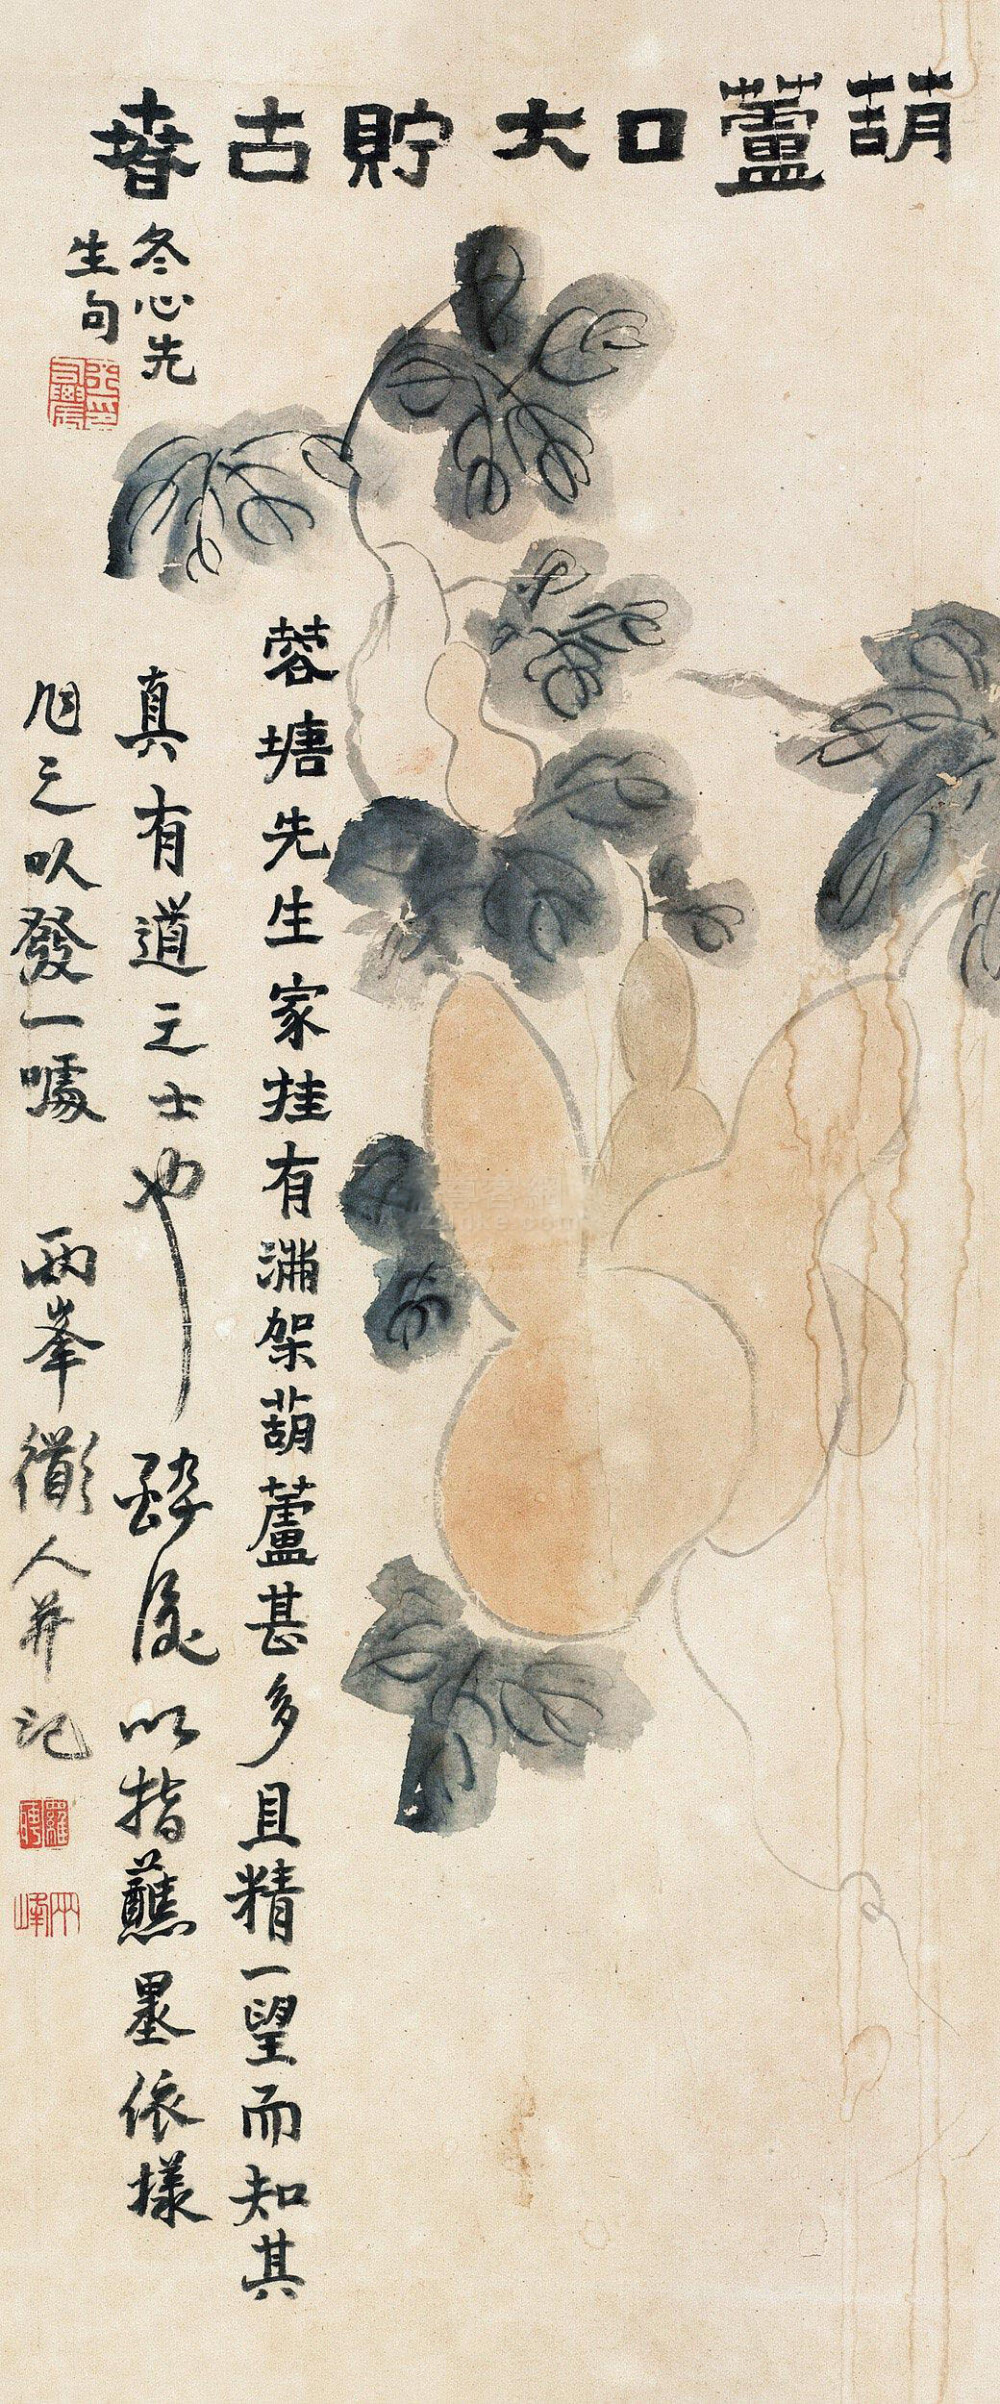 葫蘆口大貯古春
冬心先
生句
蓉塘先生家挂有滿架葫蘆甚多且精一望而知其
真有道之士也醉後以指蘸墨依樣
為之以發一噱 兩峯衜人并記
羅聘
兩峰